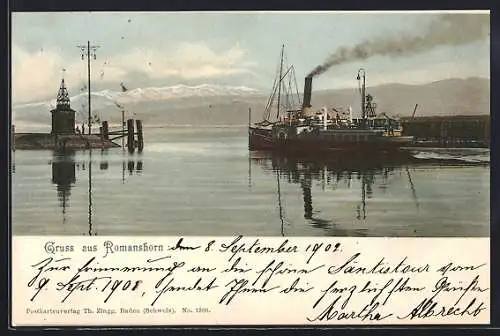 Gruss aus Romanshorn den 8. September 1902.
Zur Erinnerung an die schöne Säntistour vom
9. Sept. 1908, sendet Ihnen die herzlichsten Grüsse
Martha Albrecht
Postkartenverlag Th. Zingg, Baden (Schweiz). No. 1298.